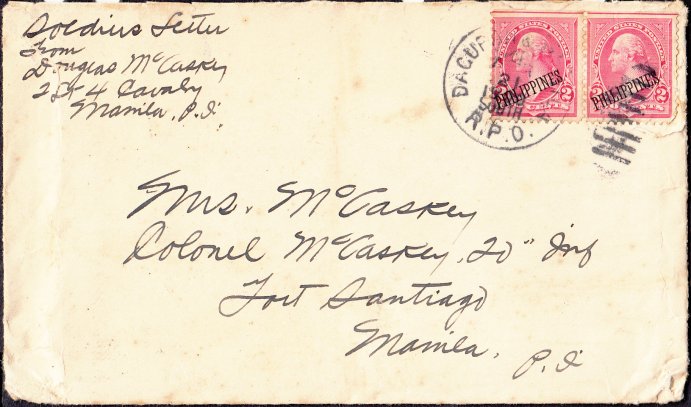 Soldiers Letter
From
Douglas McCaskey
2d Lt 4 Cavalry
Manila, P.I.
DAGUP
21
R.P.O.
PHILIPPINES
PHILIPPINES
2 2
2 2
Mrs. McCaskey
Colonel McCaskey, 20" Inf
Fort Santiago
Manila, P.I